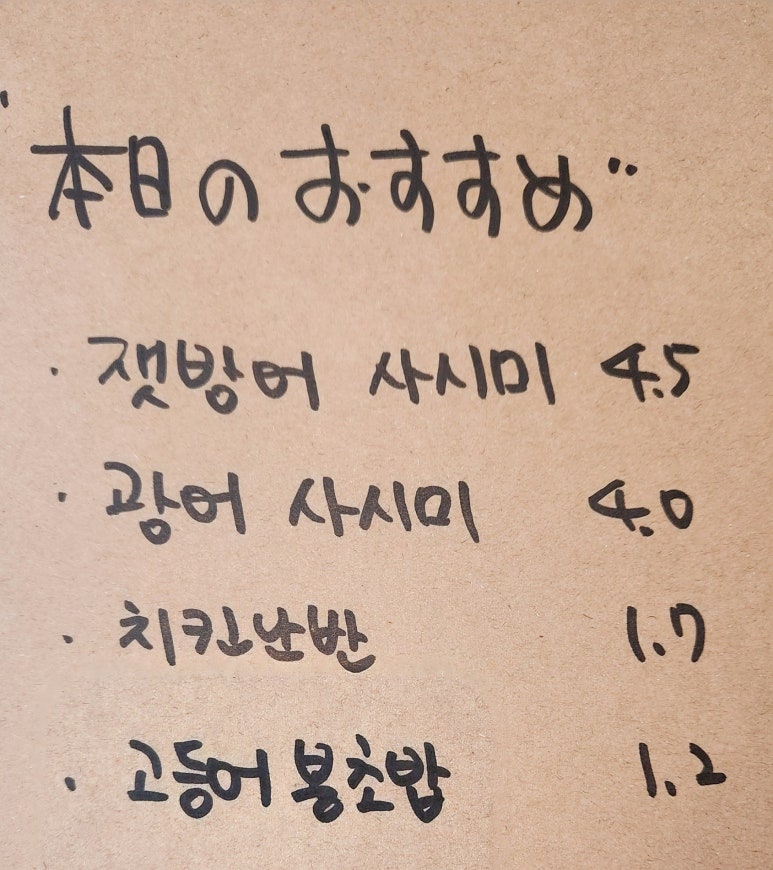 "本日のおすすめ"
· 잿방어 사시미 4.5
· 광어 사시미 4.0
· 치킨난반 1.7
· 고등어 봉초밥 1.2